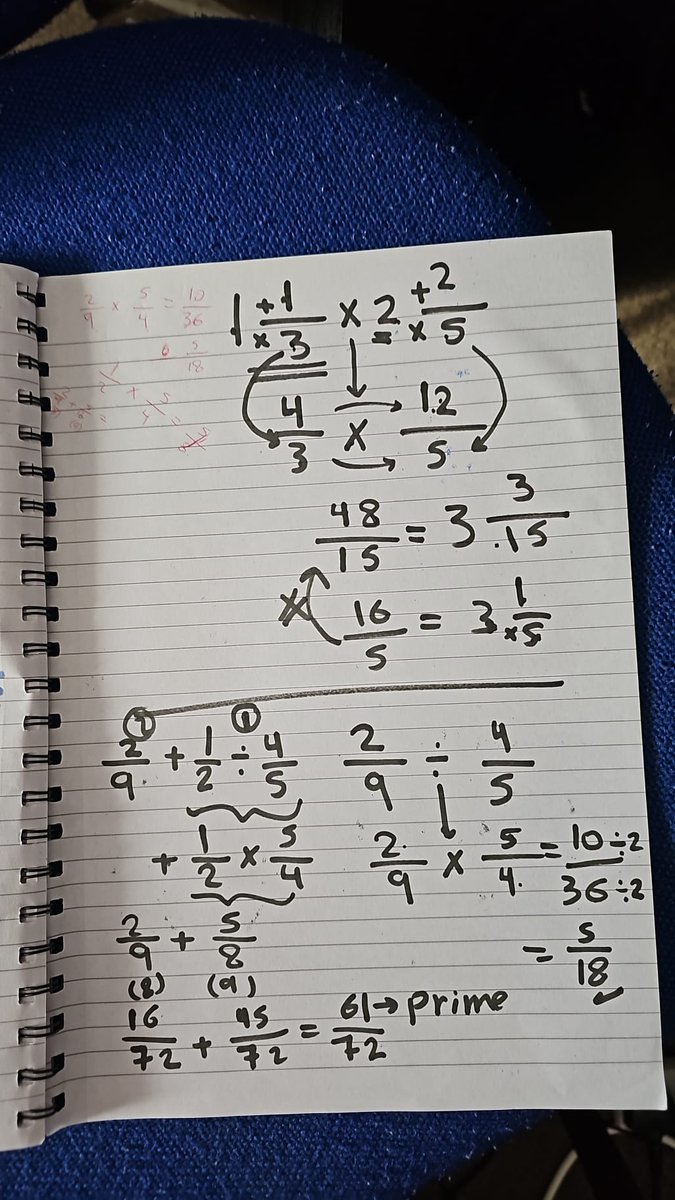 2/9 × 5/4 = 10/36
5/18
1 +1/×3 × 2 +2/×5
4/3 × 12/5
48/15 = 3 3/15
16/5 = 3 1/×5
2/9 + 1/2 ÷ 4/5
+ 1/2 × 5/4
2/9 + 5/8
(8) (9)
16/72 + 45/72 = 61/72 → prime
2/9 ÷ 4/5
2/9 × 5/4 = 10÷2/36÷2
= 5/18 ✓